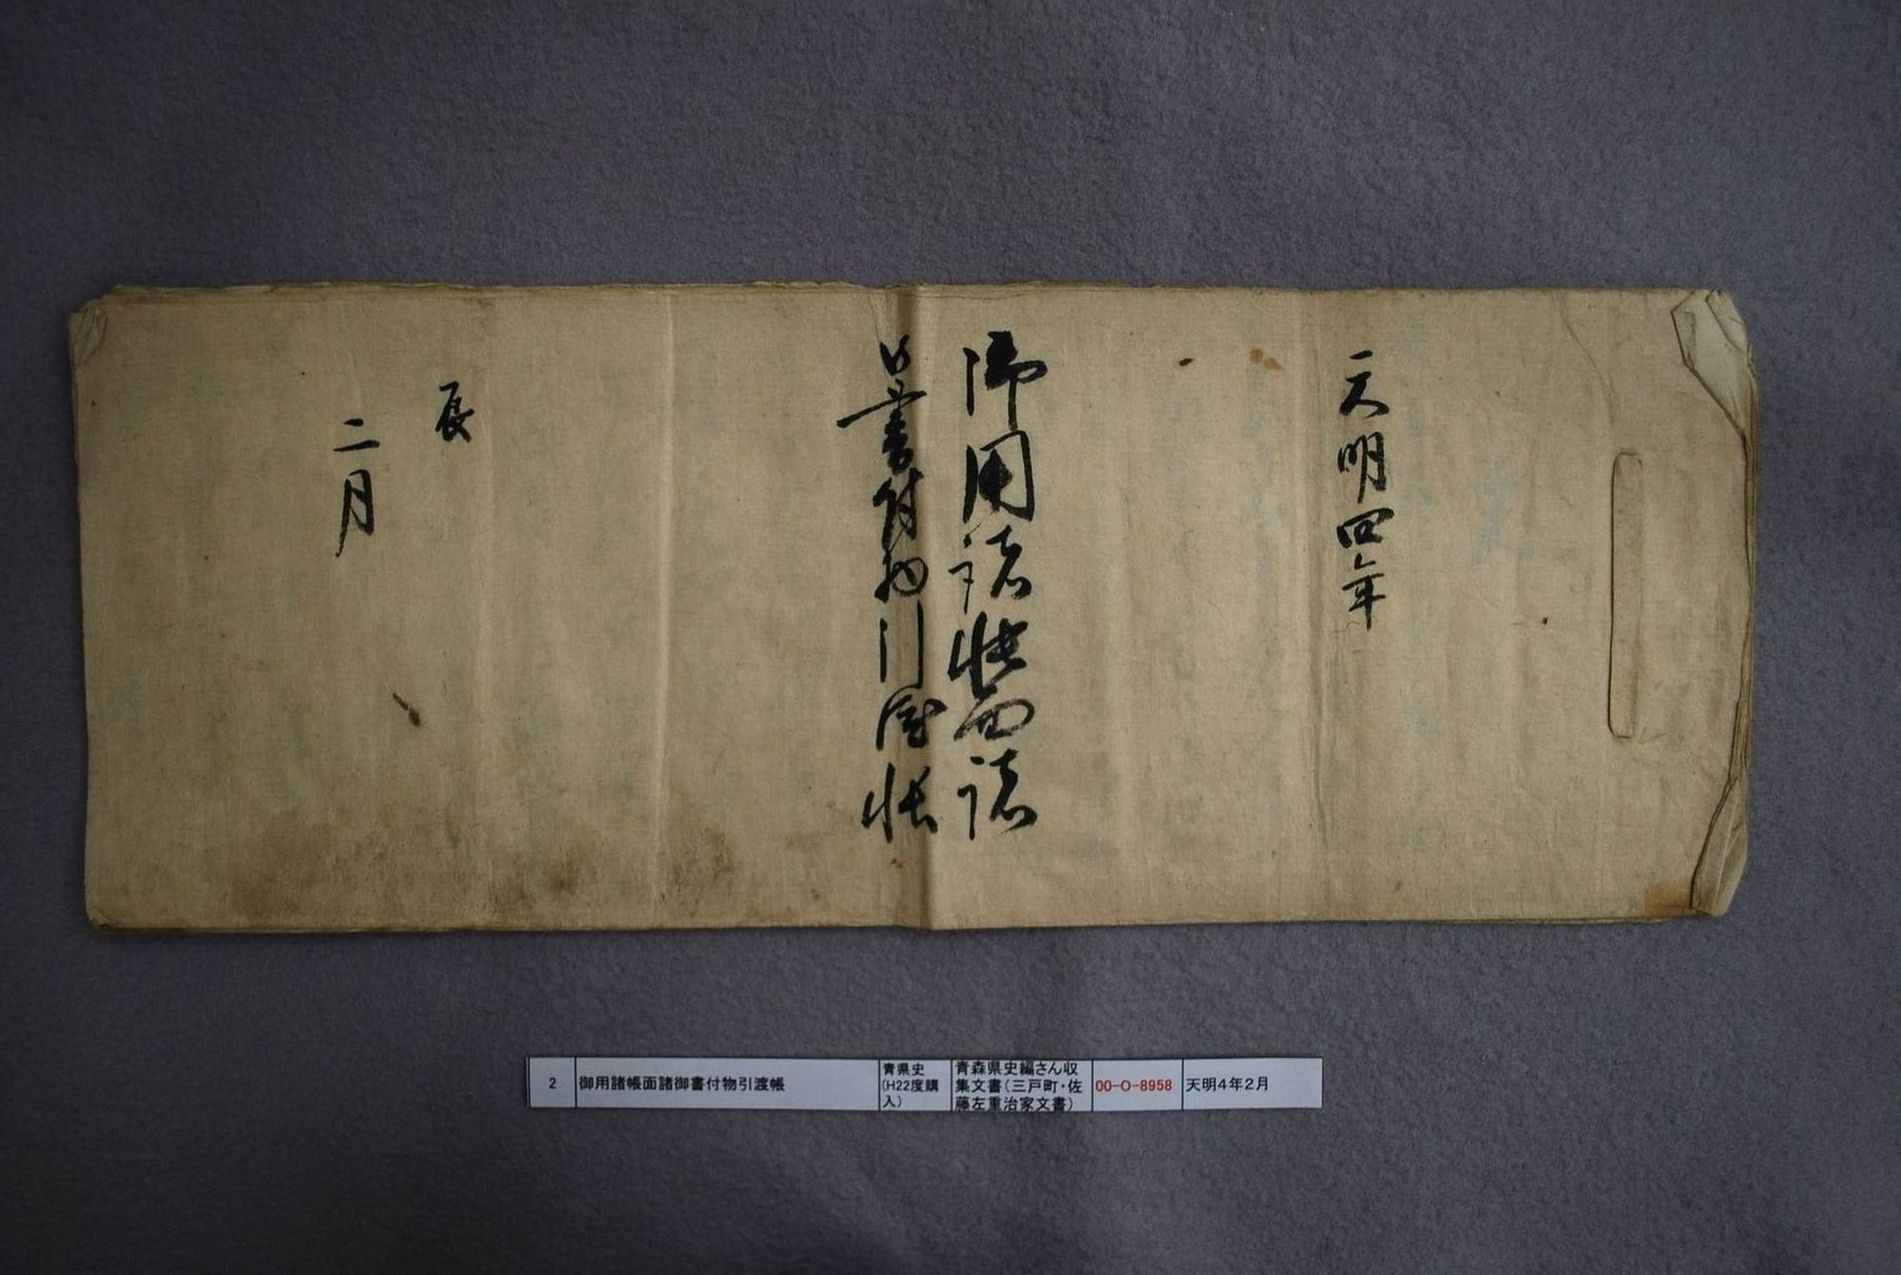 天明四年
御用諸帳面諸
御書付物引渡帳
辰
二月
2
御用諸帳面諸御書付物引渡帳
青県史
(H22度購
入)
青森県史編さん収
集文書(三戸町・佐
藤左重治家文書)
00-O-8958
天明4年2月